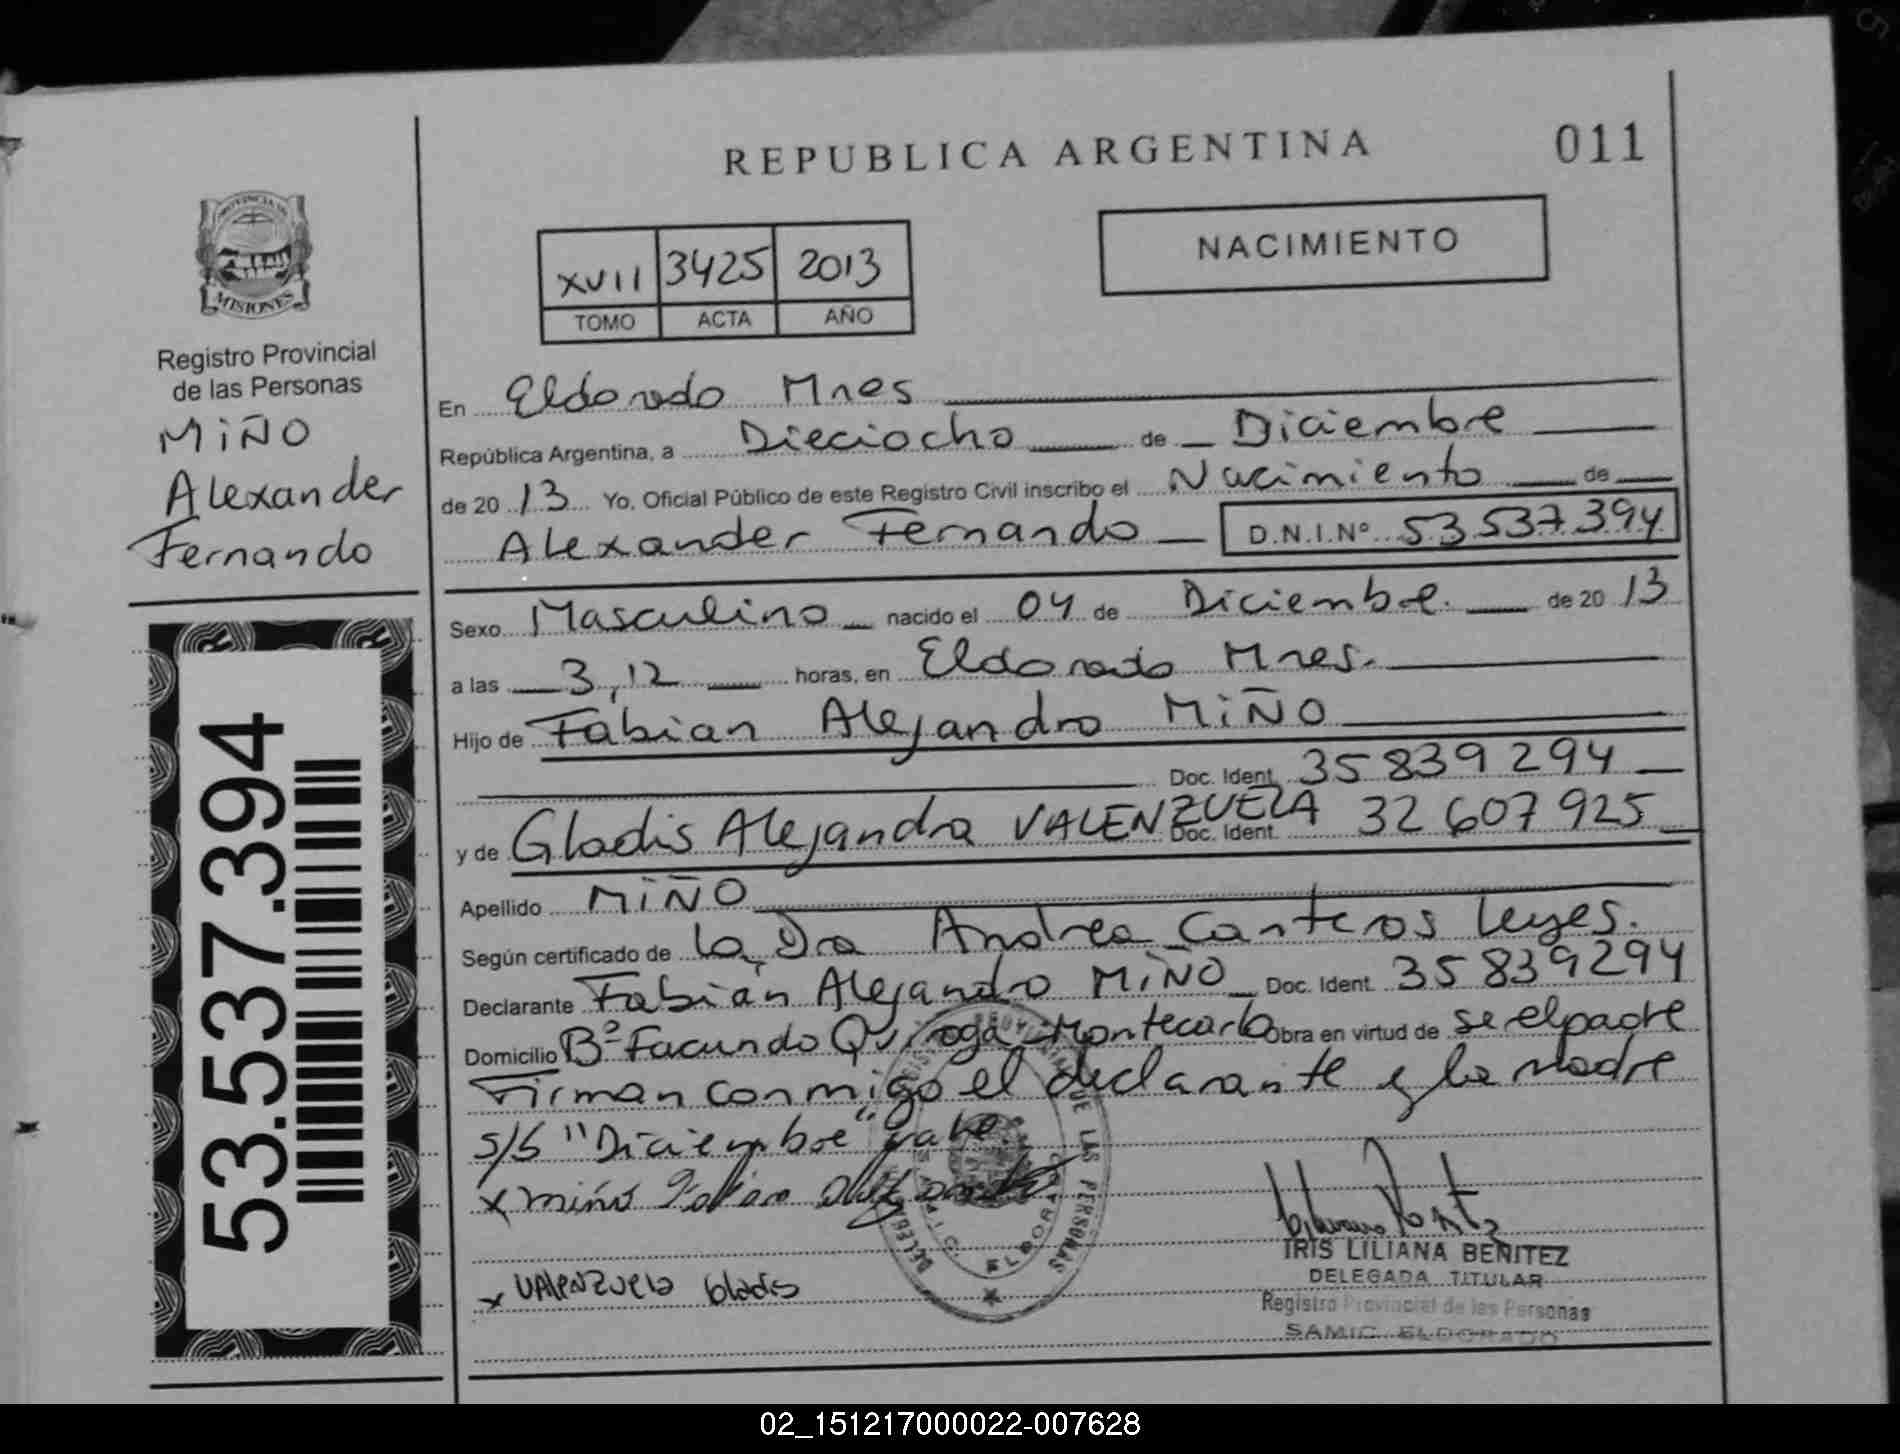 REPUBLICA ARGENTINA
011
PROVINCIA DE
MISIONES
Registro Provincial
de las Personas
MIÑO
Alexander
Fernando
XVII 3425 2013
TOMO ACTA AÑO
NACIMIENTO
En Eldorado Mnes
República Argentina, a Dieciocho de Diciembre
de 2013 Yo, Oficial Público de este Registro Civil inscribo el Nacimiento de
Alexander Fernando D.N.I.Nº 53 537.394
Sexo Masculino nacido el 04 de Diciembre. de 2013
a las 3,12 horas, en Eldorado Mnes.
Hijo de Fabian Alejandro MIÑO
Doc. Ident. 35 839 294
y de Gladis Alejandra VALENZUELA Doc. Ident. 32 607 925
Apellido MIÑO
Según certificado de la Dra Andrea Canteros Leyes.
Declarante Fabián Alejandro MIÑO Doc. Ident. 35 839294
Domicilio Bº Facundo Quiroga-Montecarlo Obra en virtud de se el padre
Firman conmigo el declarante y la madre
s/b "Diciembre" vale.
x miño Fabian
x VALENZUELA Gladis
53.537.394
PROVINCIAL DE LAS PERSONAS
ELDORADO
IRIS LILIANA BENITEZ
DELEGADA TITULAR
Registro Provincial de las Personas
SAMIC ELDORADO
02_151217000022-007628